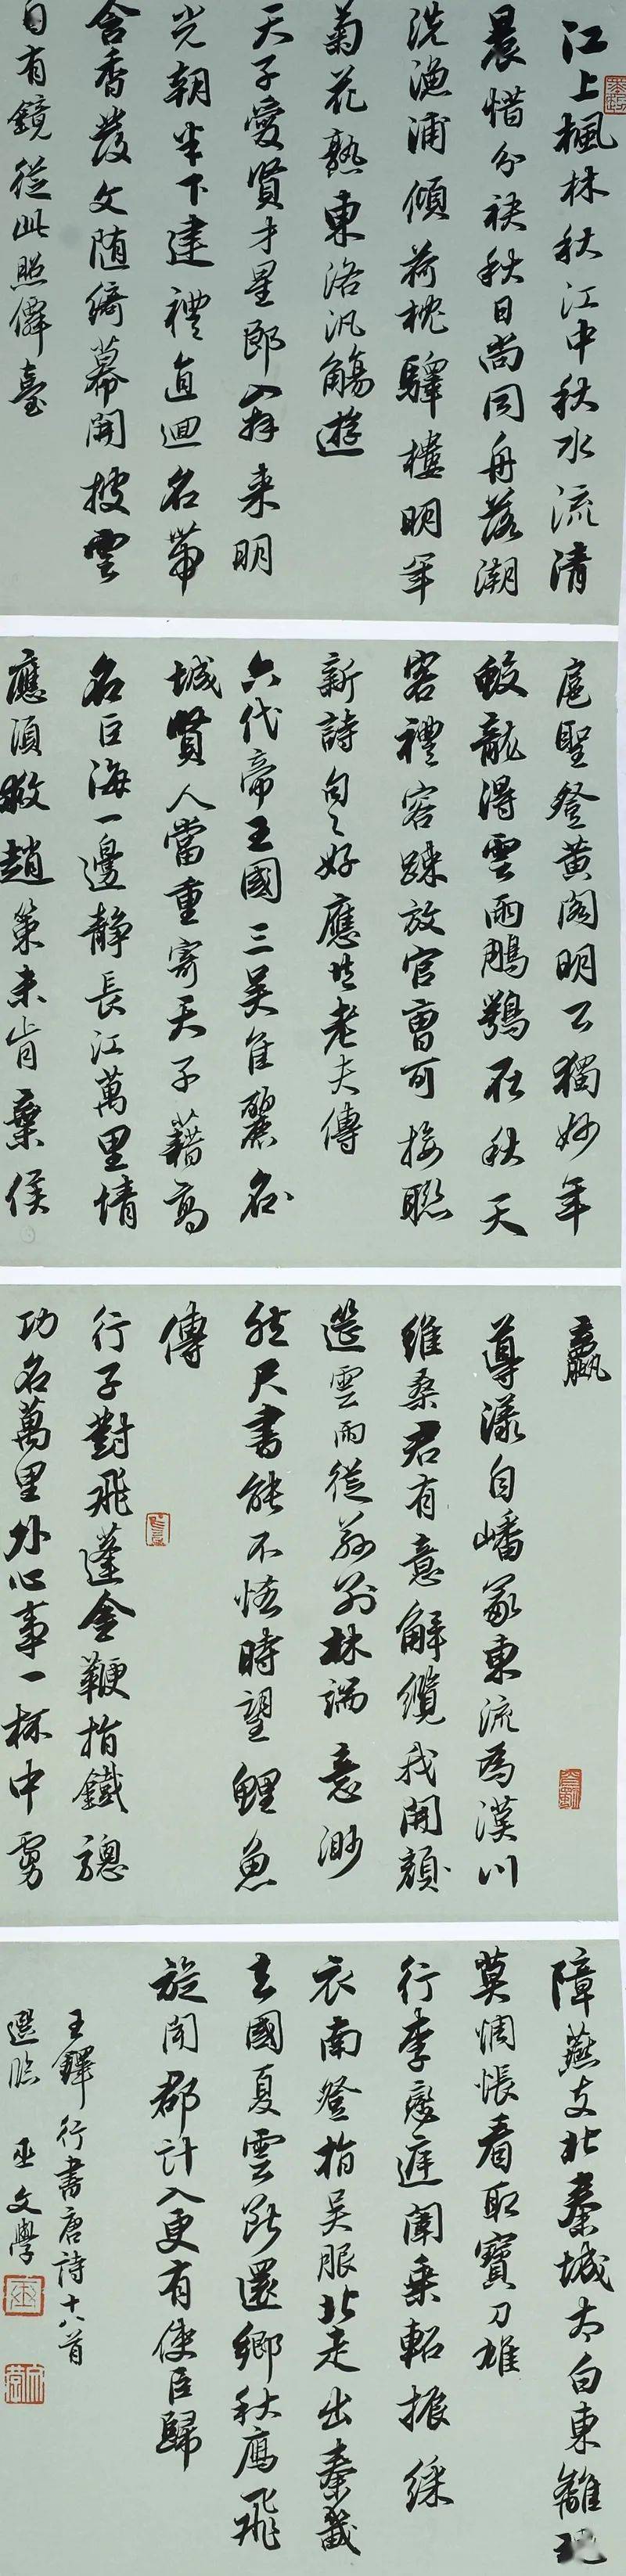 江上楓林秋江中秋水流清
晨惜分袂秋日尚同舟落潮
洗漁浦傾荷枕驛樓明年
菊花熟東洛汎觴遊
天子愛賢才星郎入拜来明
光朝半下建禮直迴名帶
含香發文随綺幕開披雲
自有鏡從此照僊臺
扈聖登黄閣明公獨妙年
蛟龍得雲雨鵰鶚在秋天
客禮容疎放官曹可接聯
新詩句〻好應共老夫傳
六代帝王國三吴佳麗
城賢人當重寄天子藉高
名巨海一邊静長江萬里情
應須救趙策未肯棄侯
嬴
導漾自嶓冢東流為漢川
維桑君有意解纜我開顔
筵雲雨從兹别林端意渺
然尺書能不悋時望鯉魚
傳
行子對飛蓬金鞭指鐵驄
功名萬里外心事一杯中虜
障燕支北秦城太白東離魂
莫惆悵看取寶刀雄
行李戀庭闈乗軺振綵
衣南登指吴服北走出秦畿
去國夏雲断還鄉秋鴈飛
旋聞郡計入更有使臣歸
王鐸行書唐詩十八首
選臨 巫文學